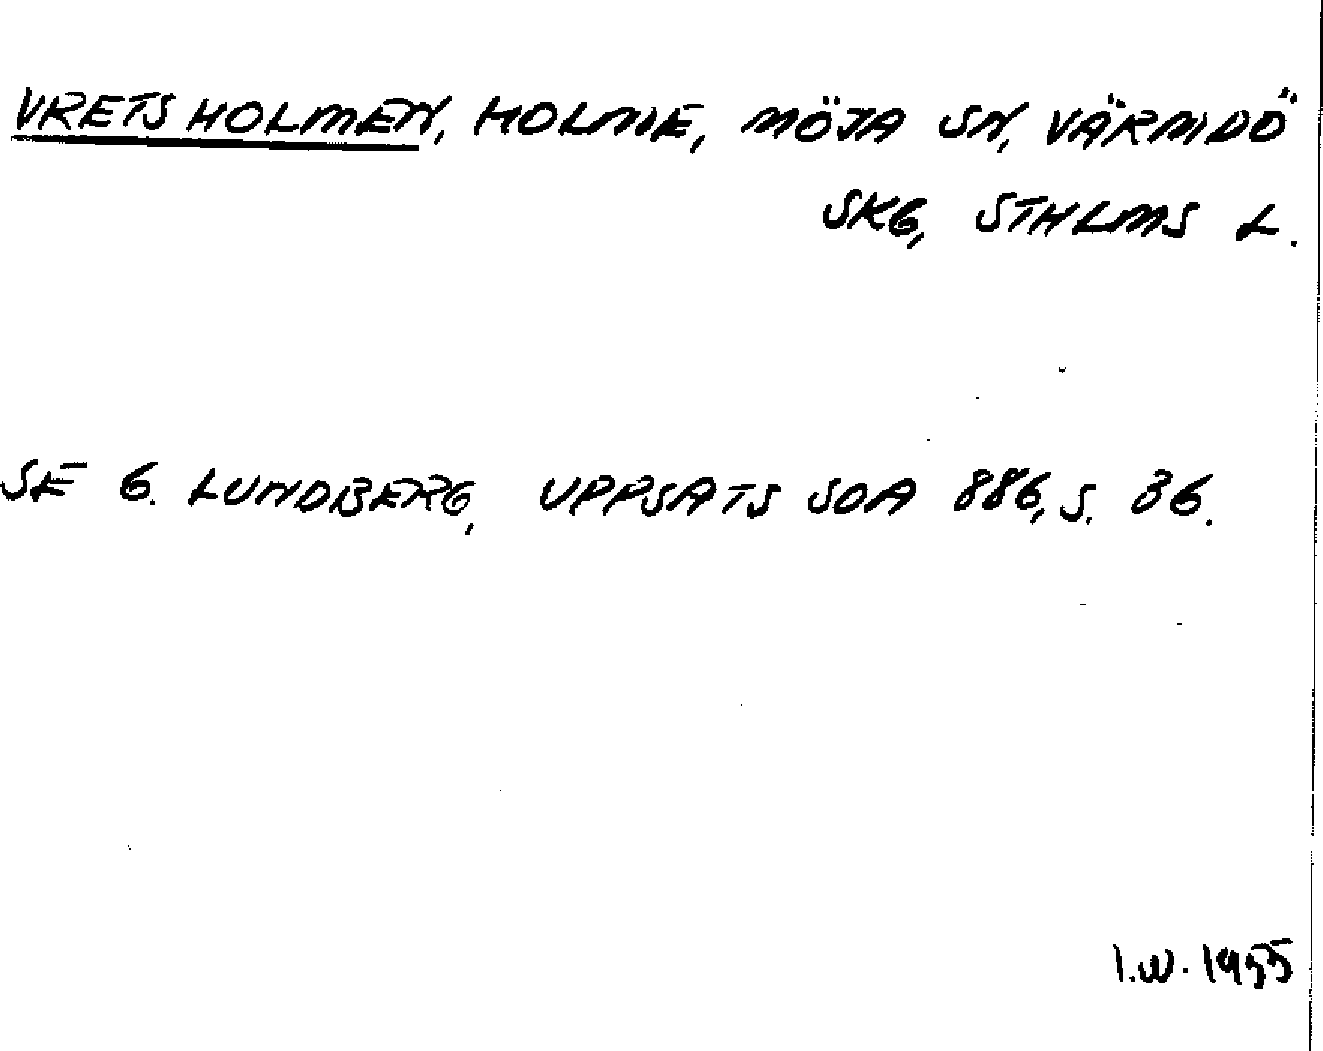 VRETSHOLMEN, HOLME, MÖJA SN, VÄRMDÖ
SKG, STHLMS L.
SE G. LUNDBERG, UPPSATS SOA 886, S. 36.
I.W. 1955